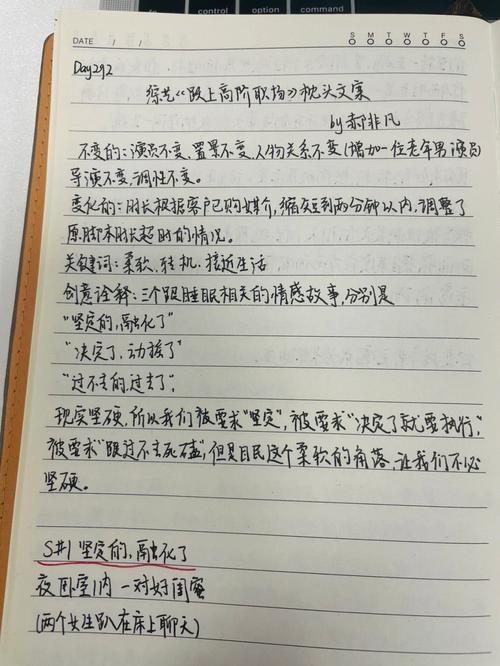 control
option
command
DATE / /
S M T W T F S
Day292
综艺《跃上高阶职场》枕头文案
by 郝非凡
不变的：演员不变、置景不变、人物关系不变（增加一位老年男演员）
导演不变、调性不变。
变化的：时长根据客户已购媒介，缩短到两分钟以内，调整了
原脚本时长超时的情况。
关键词：柔软、转机、接近生活
创意诠释：三个跟睡眠相关的情感故事，分别是
“坚定的，融化了”
“决定了，动摇了”
“过不去的，过去了”。
现实坚硬，所以我们被要求“坚定”，被要求“决定了就要执行”，
被要求“跟过不去死磕”，但是目民这个柔软的角落，让我们不必
坚硬。
S#1 坚定的，融化了
夜 卧室内 一对好闺蜜
（两个女生趴在床上聊天）